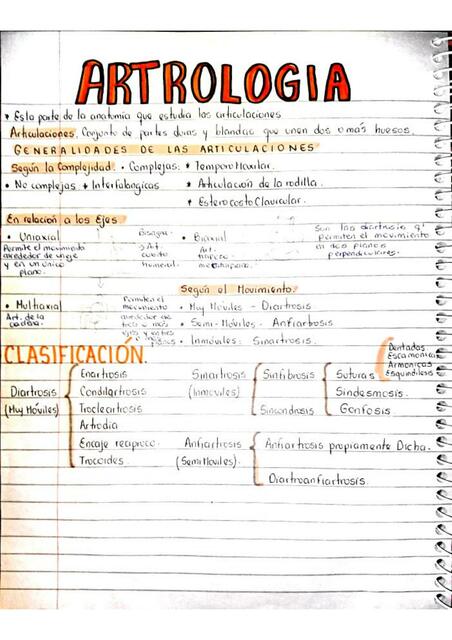 ARTROLOGIA
* Es la parte de la anatomía que estudia las articulaciones
Articulaciones. Conjunto de partes duras y blandas que unen dos o más huesos.
GENERALIDADES DE LAS ARTICULACIONES
Según la Complejidad. • Complejas: * Temporo Maxilar.
• No complejas * Interfalangicas * Articulación de la rodilla.
* Esterocosto Clavicular.
En relación a los Ejes
• Uniaxial
Permite el movimiento
alrededor de un eje
y en un único
plano.
Bisagra.
Art.
codo
Humeral
• Biaxial
Art.
Son las diartrosis q'
permiten el movimiento
en dos planos
perpendiculares.
Según el Movimiento.
• Multiaxial
Art. de la
cadera.
Permiten el
movimiento
alrededor de
tres o más
ejes y
planos
• Muy Móviles - Diartrosis
• Semi-Móviles - Anfiartrosis
• Inmóviles: Sinartrosis.
CLASIFICACIÓN.
Diartrosis
(Muy Móviles)
Enartrosis
Condilartrosis
Trocleartrosis
Artrodia
Encaje reciproco.
Trocoides.
Sinartrosis
(Inmoviles)
Sinfibrosis
Suturas
Dentadas
Escamonicas
Armonicas
Esquindilesis
Sindesmosis.
Sincondrosis
Gonfosis
Anfiartrosis
(Semi Moviles).
Anfiartrosis propiamente Dicha.
Diartroanfiartrosis.